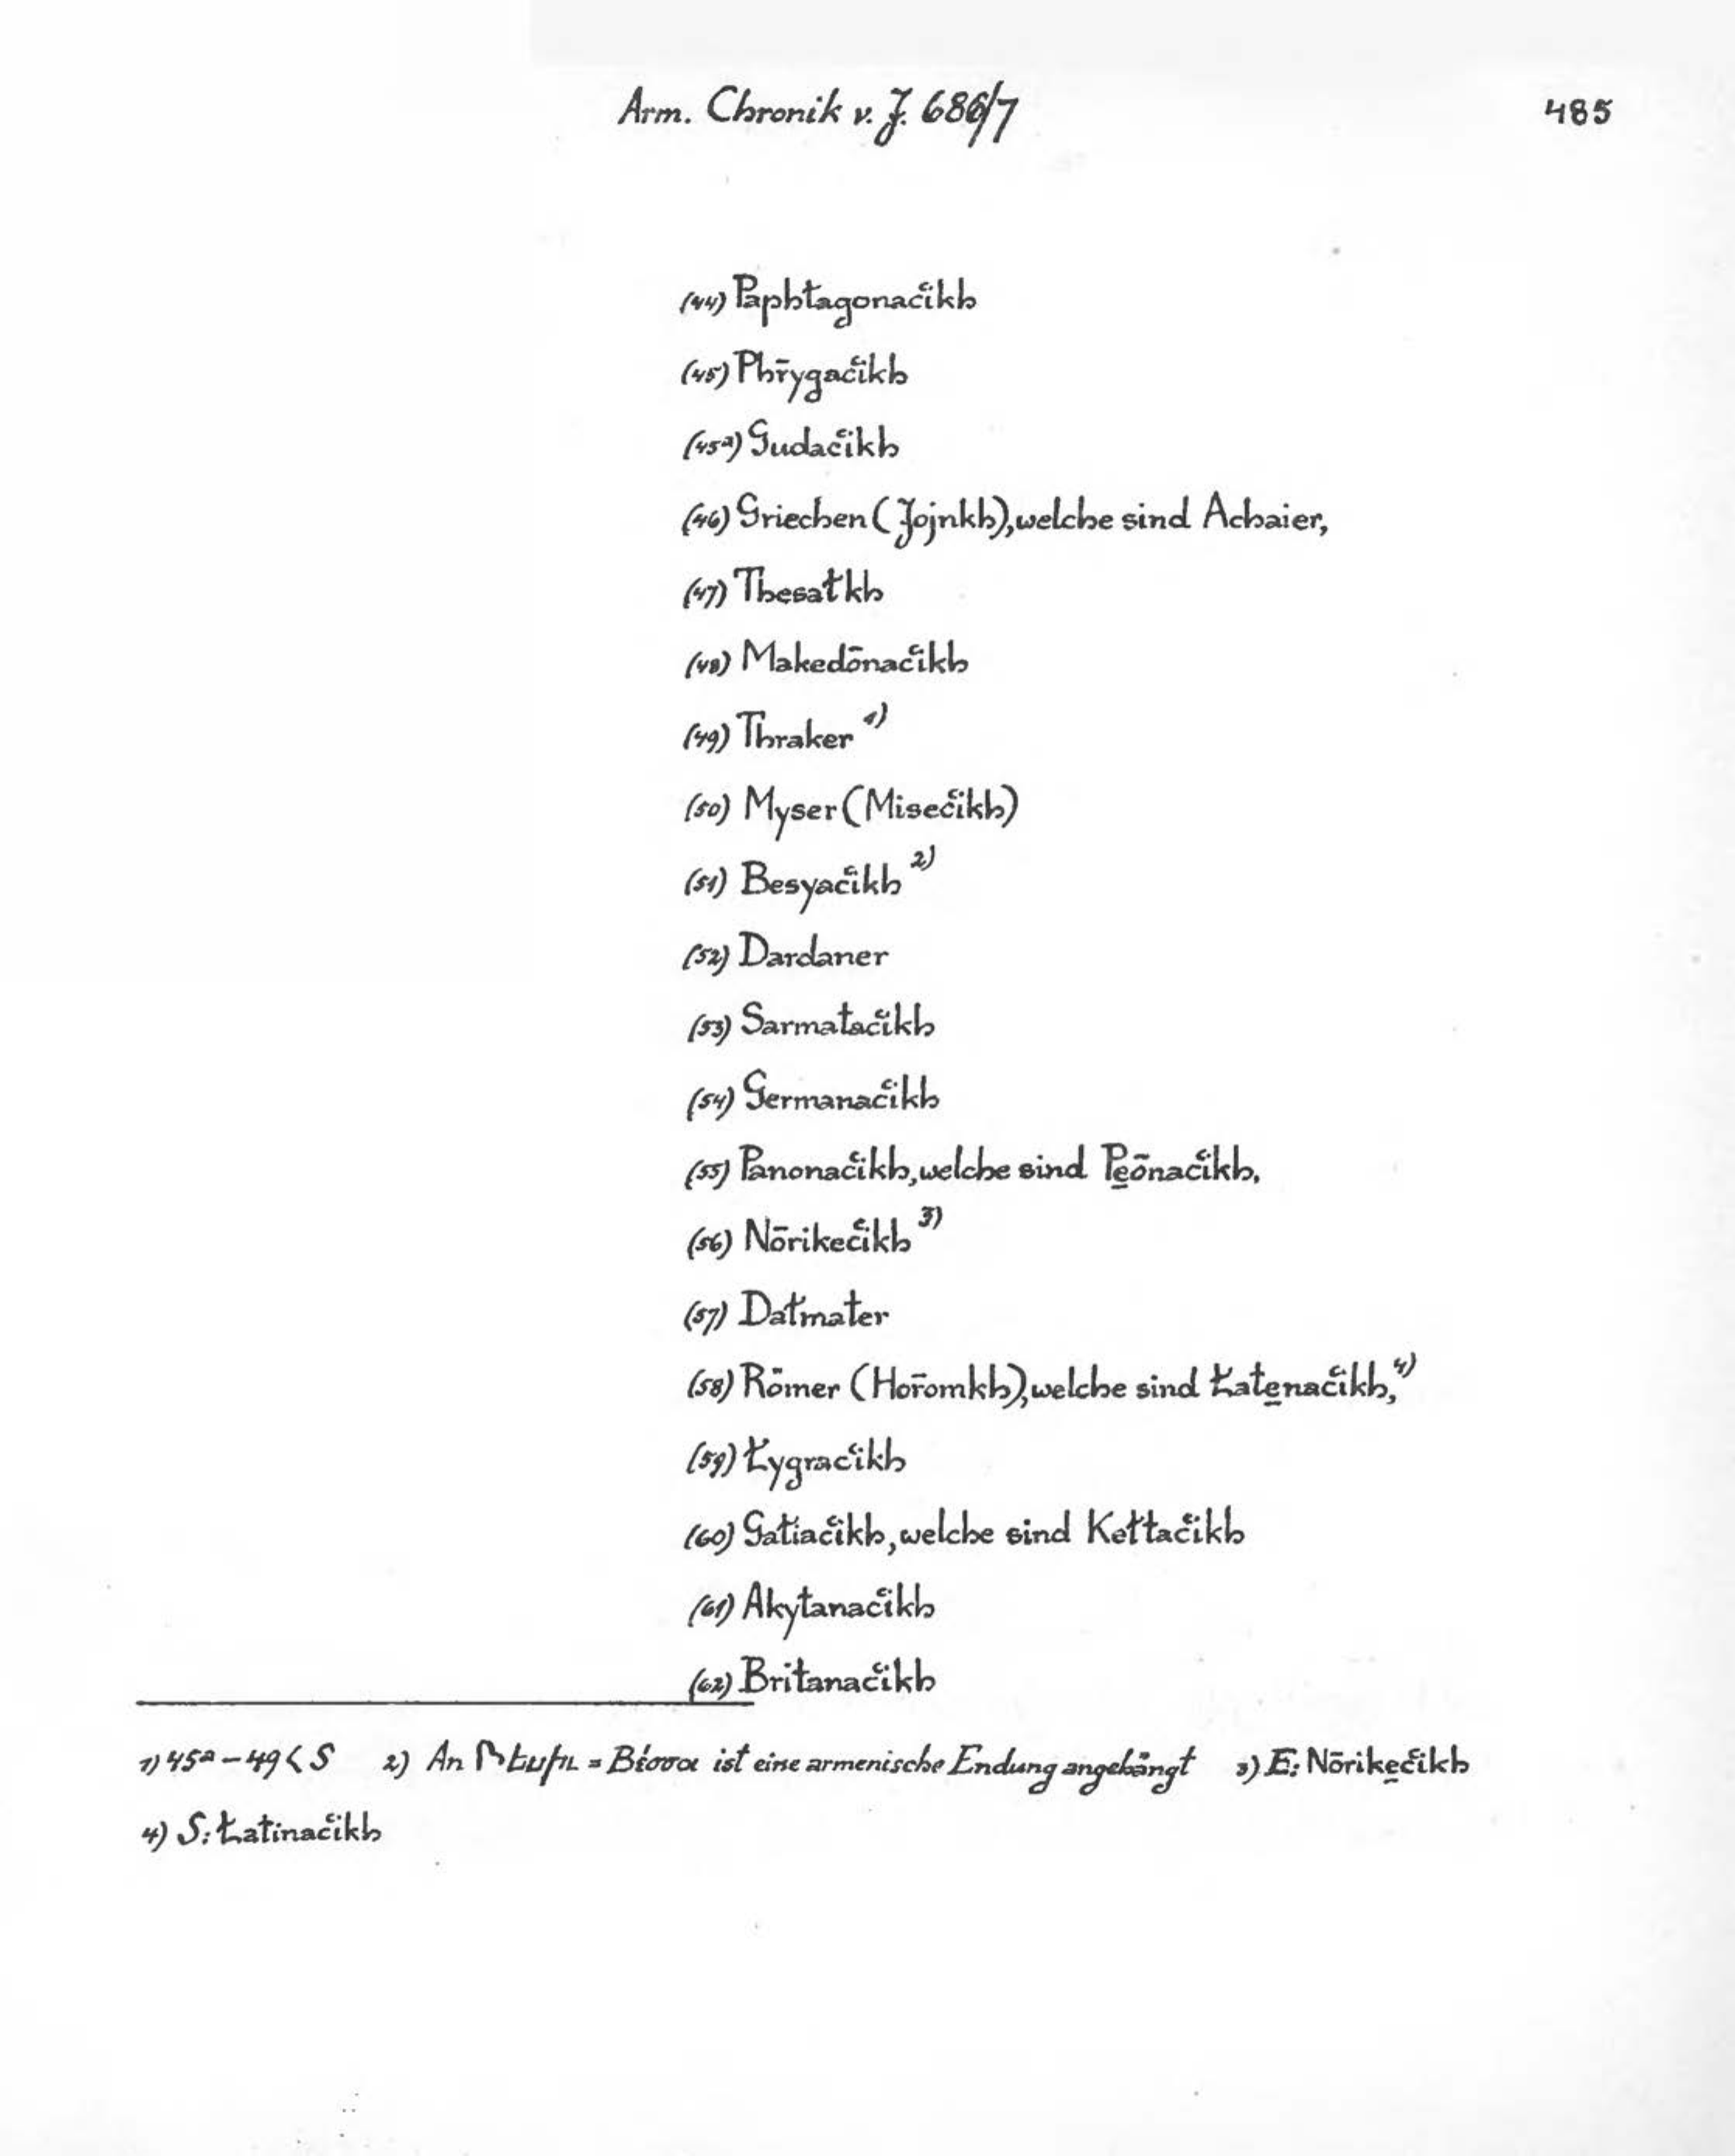 Arm. Chronik v. J. 686/7 485
(44) Paphłagonac̔ikh
(45) Phr̄ygac̔ikh
(45a) Gudac̔ikh
(46) Griechen (Jojnkh), welche sind Achaier,
(47) Thesałkh
(48) Makedōnac̔ikh
(49) Thraker 1)
(50) Myser (Misec̔ikh)
(51) Besyac̔ikh 2)
(52) Dardaner
(53) Sarmatac̔ikh
(54) Germanac̔ikh
(55) Panonac̔ikh, welche sind Pe̱ōnac̔ikh,
(56) Nōrikec̔ikh 3)
(57) Dałmater
(58) Römer (Hor̄omkh), welche sind Łate̱nac̔ikh, 4)
(59) Łygrac̔ikh
(60) Gałiac̔ikh, welche sind Kełtac̔ikh
(61) Akytanac̔ikh
(62) Britanac̔ikh
1) 45a – 49 < S 2) An Բեսիւ = Βέσσοι ist eine armenische Endung angehängt 3) E: Nōrike̱c̔ikh
4) S: Łatinac̔ikh